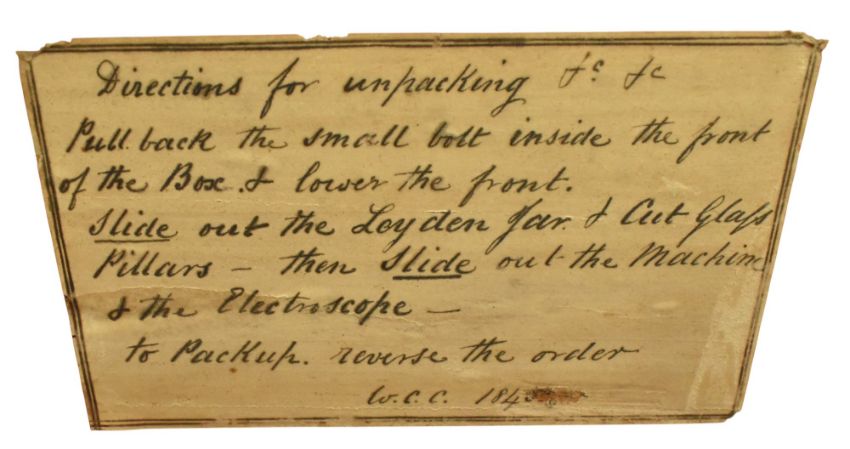 Directions for unpacking &c &c
Pull back the small bolt inside the front
of the Box. & lower the front.
Slide out the Leyden Jar. & Cut Glaſs
Pillars – then Slide out the Machine
& the Electroscope –
to Packup. reverse the order
W.C.C.